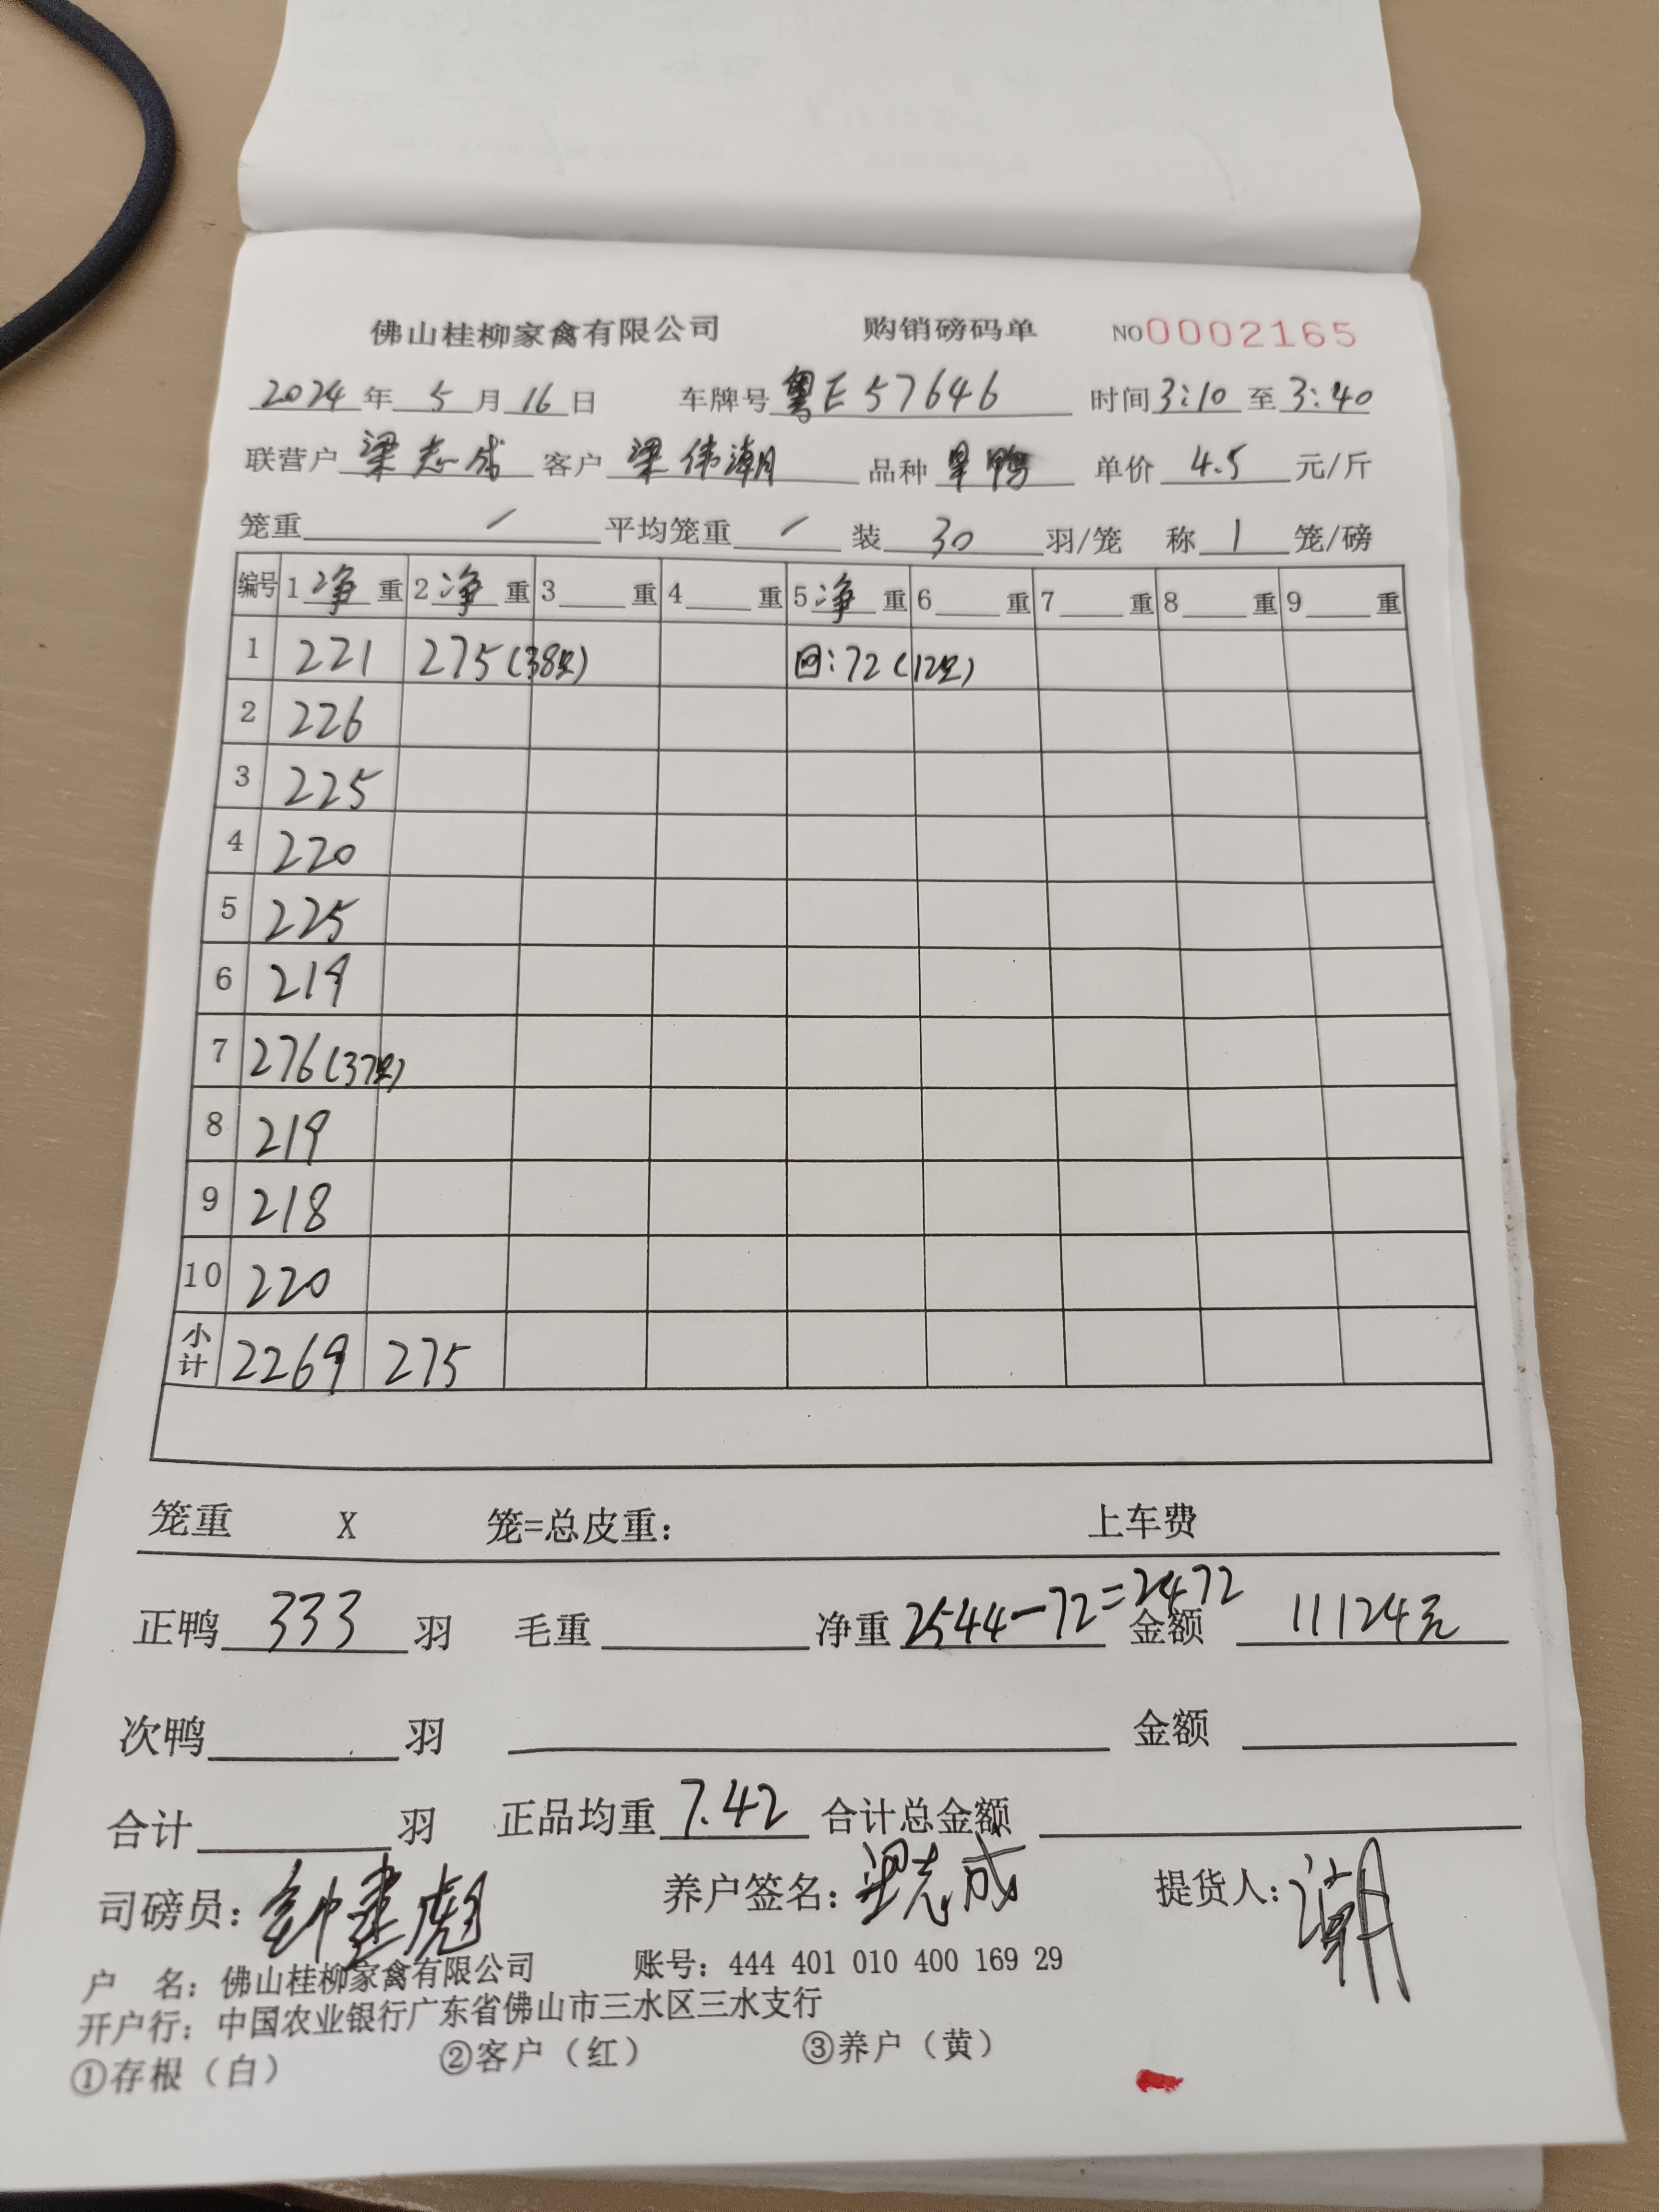 佛山桂柳家禽有限公司 购销磅码单 NO0002165
2024年5月16日 车牌号粤E57646 时间3:10至3:40
联营户梁志成 客户梁伟潮 品种旱鸭 单价4.5元/斤
笼重/平均笼重/装30羽/笼 称1笼/磅
编号 1净重 2净重 3重 4重 5净重 6重 7重 8重 9重
1 221 275(38只) 回:72(12只)
2 226
3 225
4 220
5 225
6 219
7 276(37只)
8 219
9 218
10 220
小计 2269 275
笼重 X 笼=总皮重: 上车费
正鸭333羽 毛重 净重2544-72=2472 金额11124元
次鸭 羽 金额
合计 羽 正品均重7.42 合计总金额
司磅员:钟建彪 养户签名:梁志成 提货人:潮
户 名:佛山桂柳家禽有限公司 账号:444 401 010 400 169 29
开户行:中国农业银行广东省佛山市三水区三水支行
①存根(白) ②客户(红) ③养户(黄)